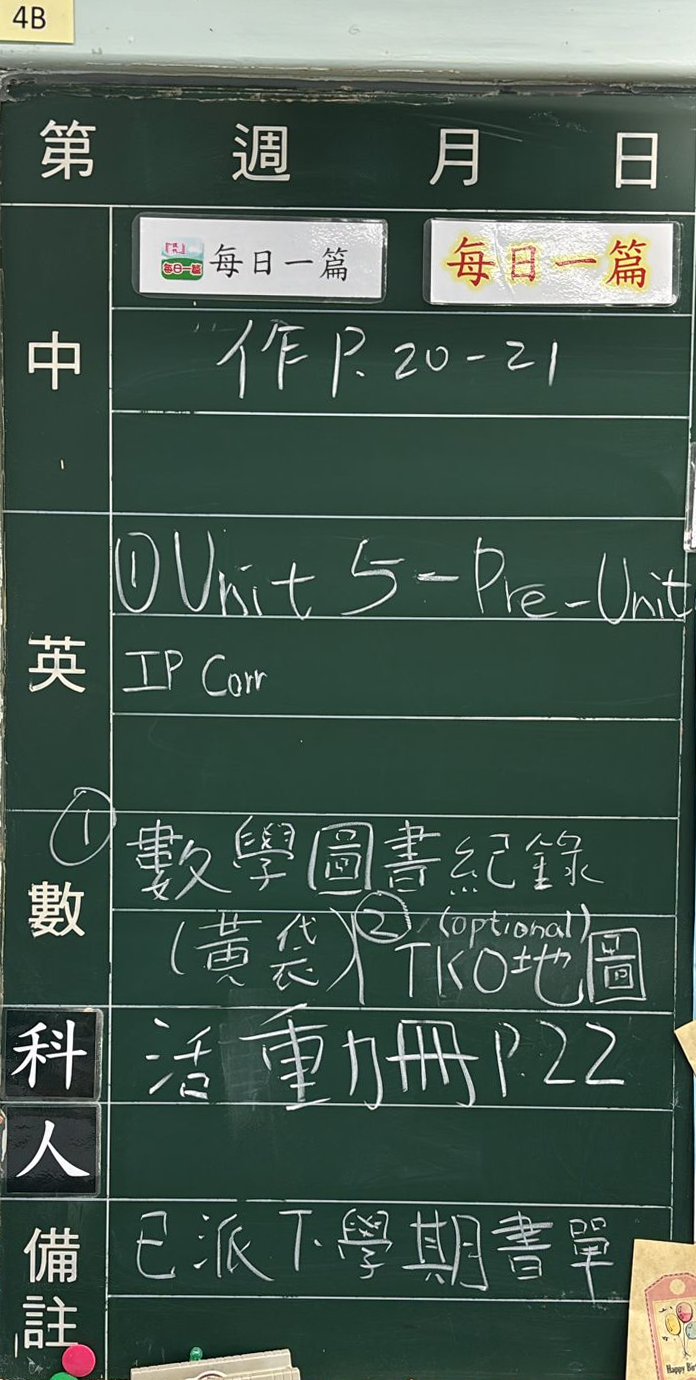 4B
第 週 月 日
每日一篇 每日一篇 每日一篇
中
作 P. 20-21
英
① Unit 5 - Pre-Unit
IP Corr
數
① 數學圖書紀錄
(黃袋) ② (optional) TKO地圖
科
活動冊 P.22
人
備註
已派下學期書單